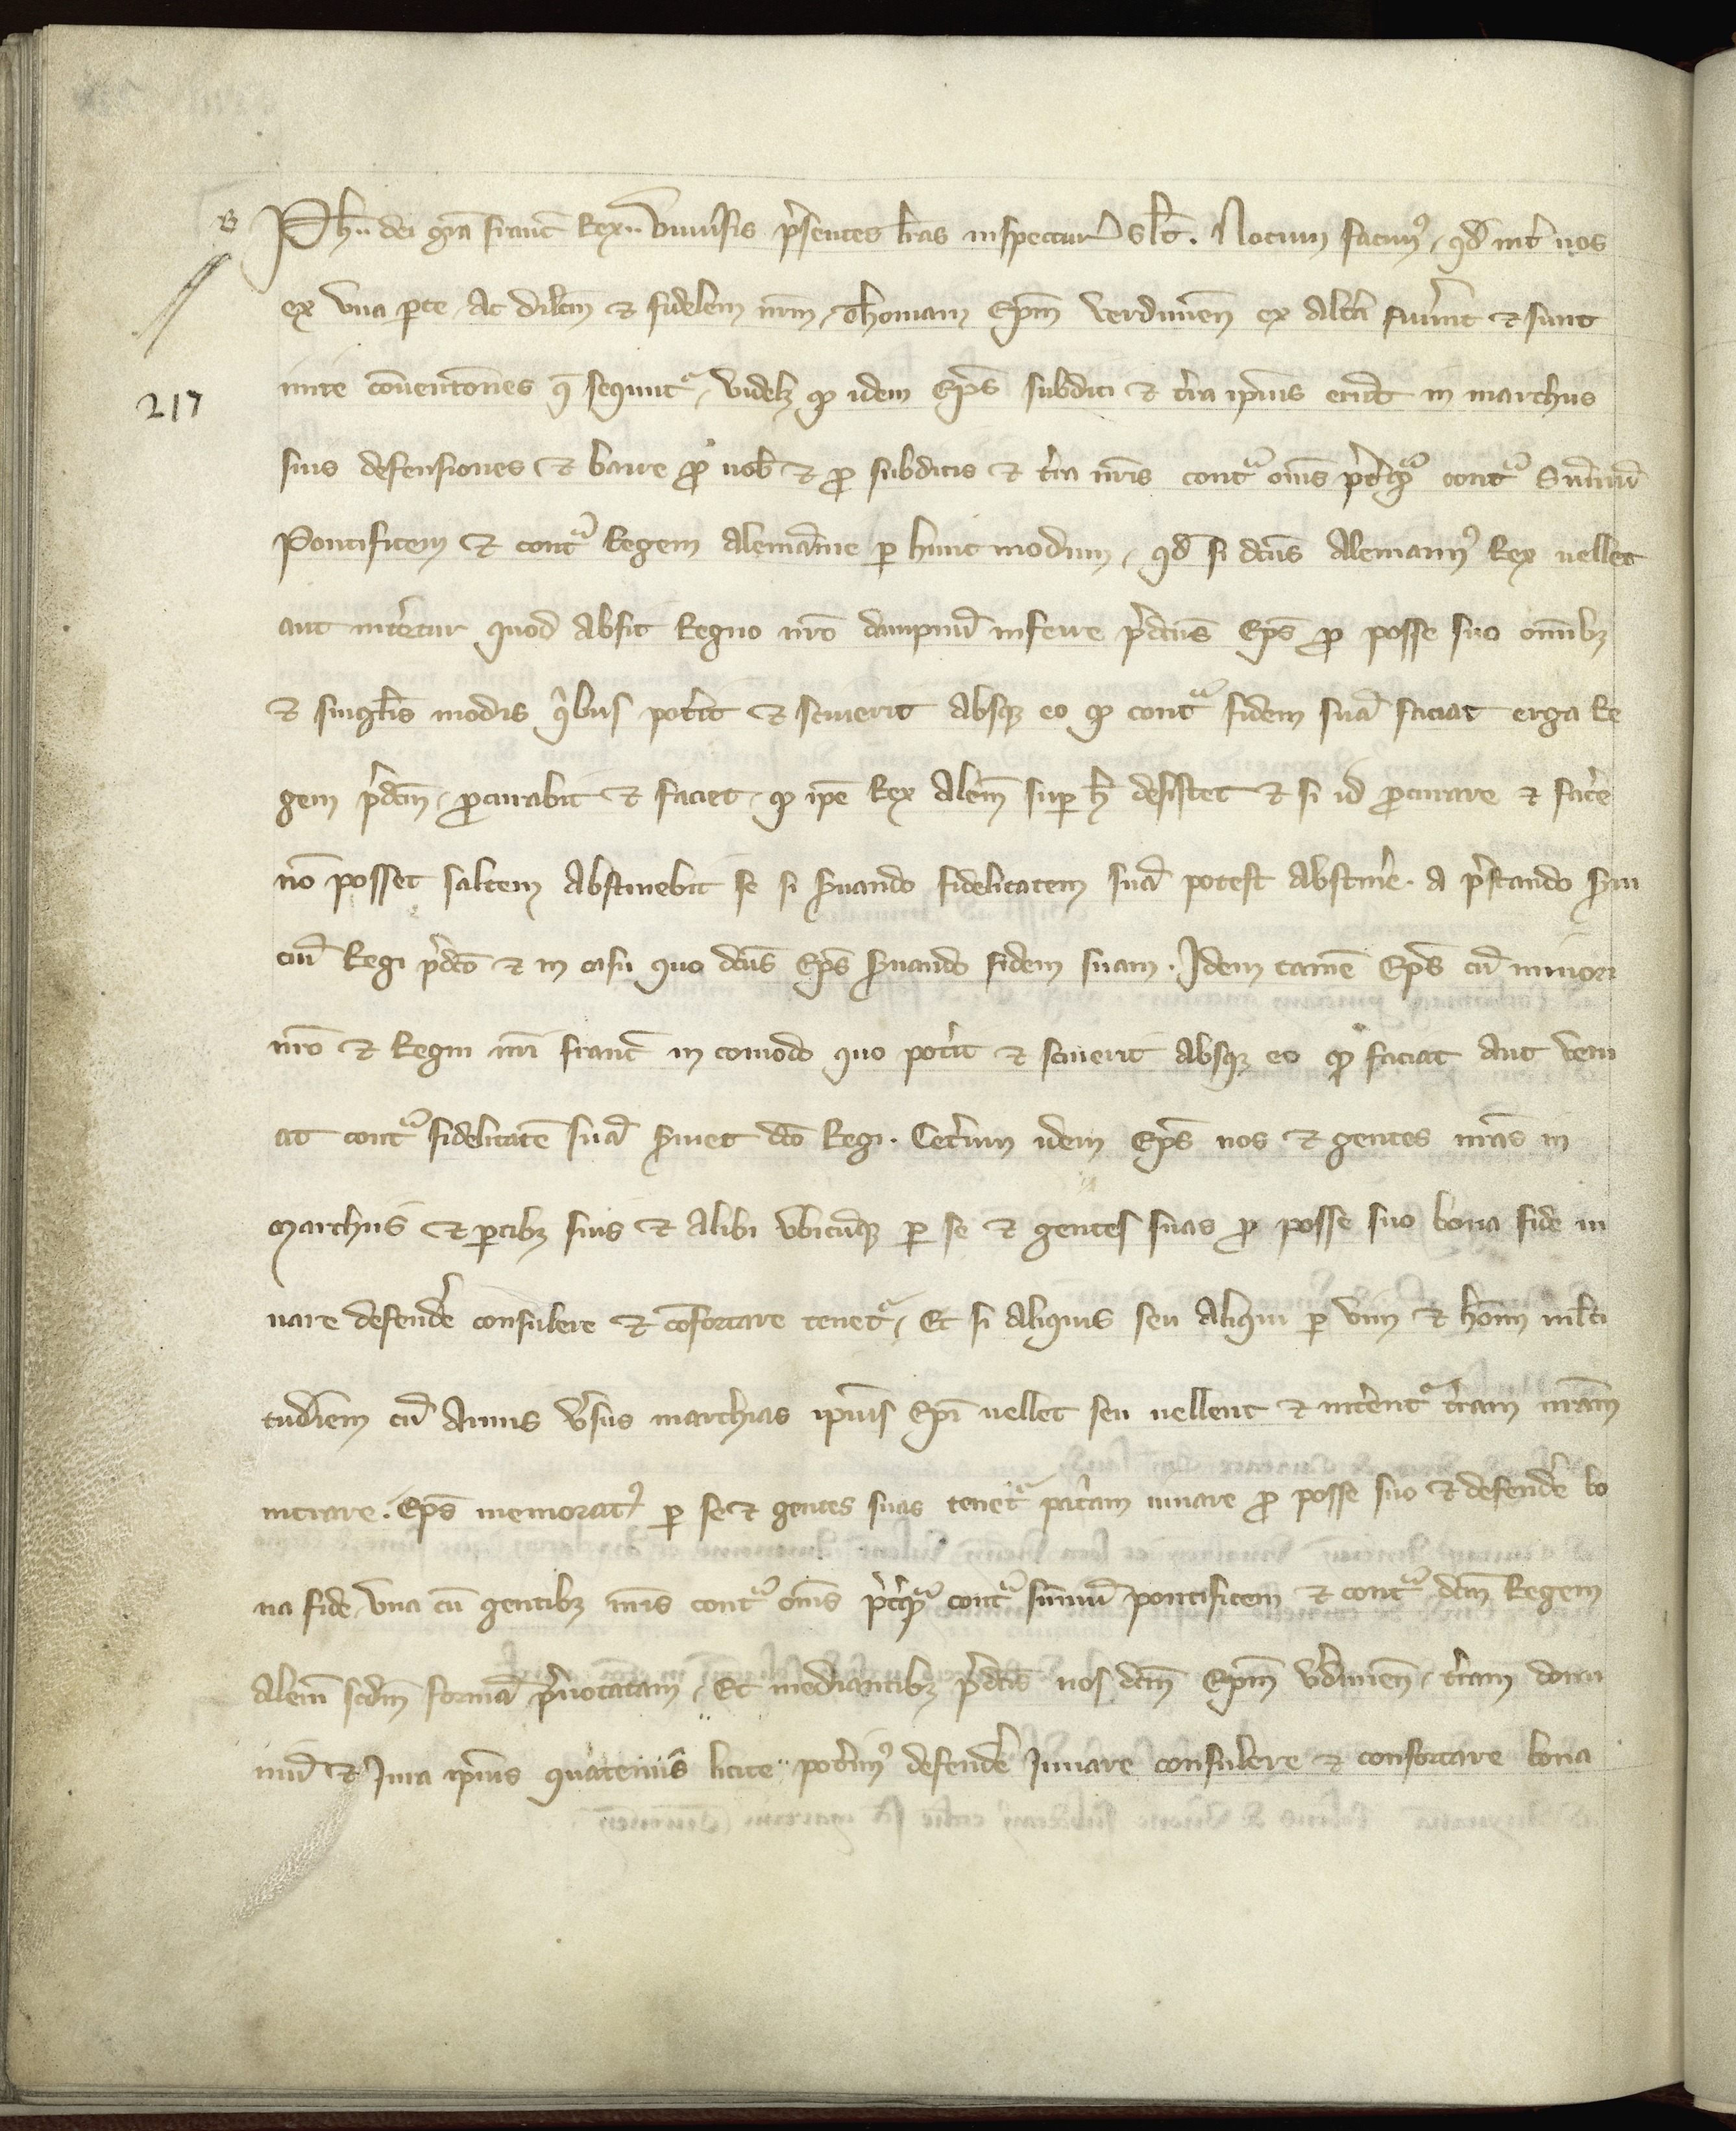 B
Ph. dei gr̃a franc̃ Rex. Vniu̾sis p̾sentes lr̃as inspectur̾ slt̃. Notum facim⁹, qd̃ int̾ nos
217
ex vna ꝑte, ac dilc̃m & fidelem nr̃m, Thomam Ep̃m verdunen̄ ex alt̾a fueru̾nt & sunt
inite conuent̃ones q̄ sequnt᷑, videlꝫ ꝙ idem Ep̃s subditi & t̾ra ip̃ius eru̾t in marchiis
suis defensiones & barre ꝓ nob̃ & ꝓ subditis & t̾ra nr̃is contᵃ om̃s p̾t̾qᵃ contᵃ Sum̃u̾
Pontificem & contᵃ Regem alemãnie ꝑ hunc modum, qd̃ si dc̃us Alemann⁹ Rex uellet
aut nit̾etur quod absit Regno nr̃o dampnu̾ inferre p̾dc̃us Ep̃s ꝓ posse suo om̃ibꝫ
& singl̃is modis qⁱbus pot̾it & sciuerit absqꝫ eo ꝙ contᵃ fidem suã faciat erga Re
gem p̾dc̃m, ꝓcurabit & faciet, ꝙ ip̃e Rex Alem̃ suꝑ h̃ desistet & si id ꝓcurare & fac̾e
nõ posset saltem abstinebit se si s̾uando fidelitatem suã potest abstin̾e. a p̾stando s̾ui
ciu̾ Regi p̾dc̃o & in casu quo dc̃us Ep̃s s̾uando fidem suam. Idem tamẽ Ep̃s cu̾ minori
nr̃o & Regni nr̃i franc̃ in comodo quo pot̾it & sciuerit absqꝫ eo ꝙ faciat aut veni
at contᵃ fidelitatẽ suã s̾uiet dc̃o Regi. Cet̾um idem Ep̃s nos & gentes nr̃as in
marchiis & ꝑtibꝫ suis & alibi vbicu̾qꝫ ꝑ se & gentes suas ꝓ posse suo bona fide iu
uare defend̾e consulere & cõfortare tenet᷑, Et si aliquis seu aliqui ꝑ vim & hom̃ mlt̃i
tudĩem cu̾ armis v̾sus marchias ip̃ius Ep̃i uellet seu uellent & nit̾ent᷑ t̾ram nr̃am
intrare. Ep̃s memorat⁹ ꝑ se & gentes suas tenet᷑ pat̾am iuuare ꝓ posse suo & defend̾e bo
na fide vna cũ gentibꝫ nr̃is contᵃ om̃s p̾t̾qᵃ contᵃ sum̃u̾ pontificem & contᵃ dc̃m Regem
Alem̃ scd̃m formã p̾notatam, Et mediantibꝫ p̾dc̃is nos dc̃m Ep̃m v̾dunen̄, t̾ram domi
niu̾ & Jura ip̃ius quatenus licite pot̾im⁹ defend̾e Juuare consulere & confortare bona